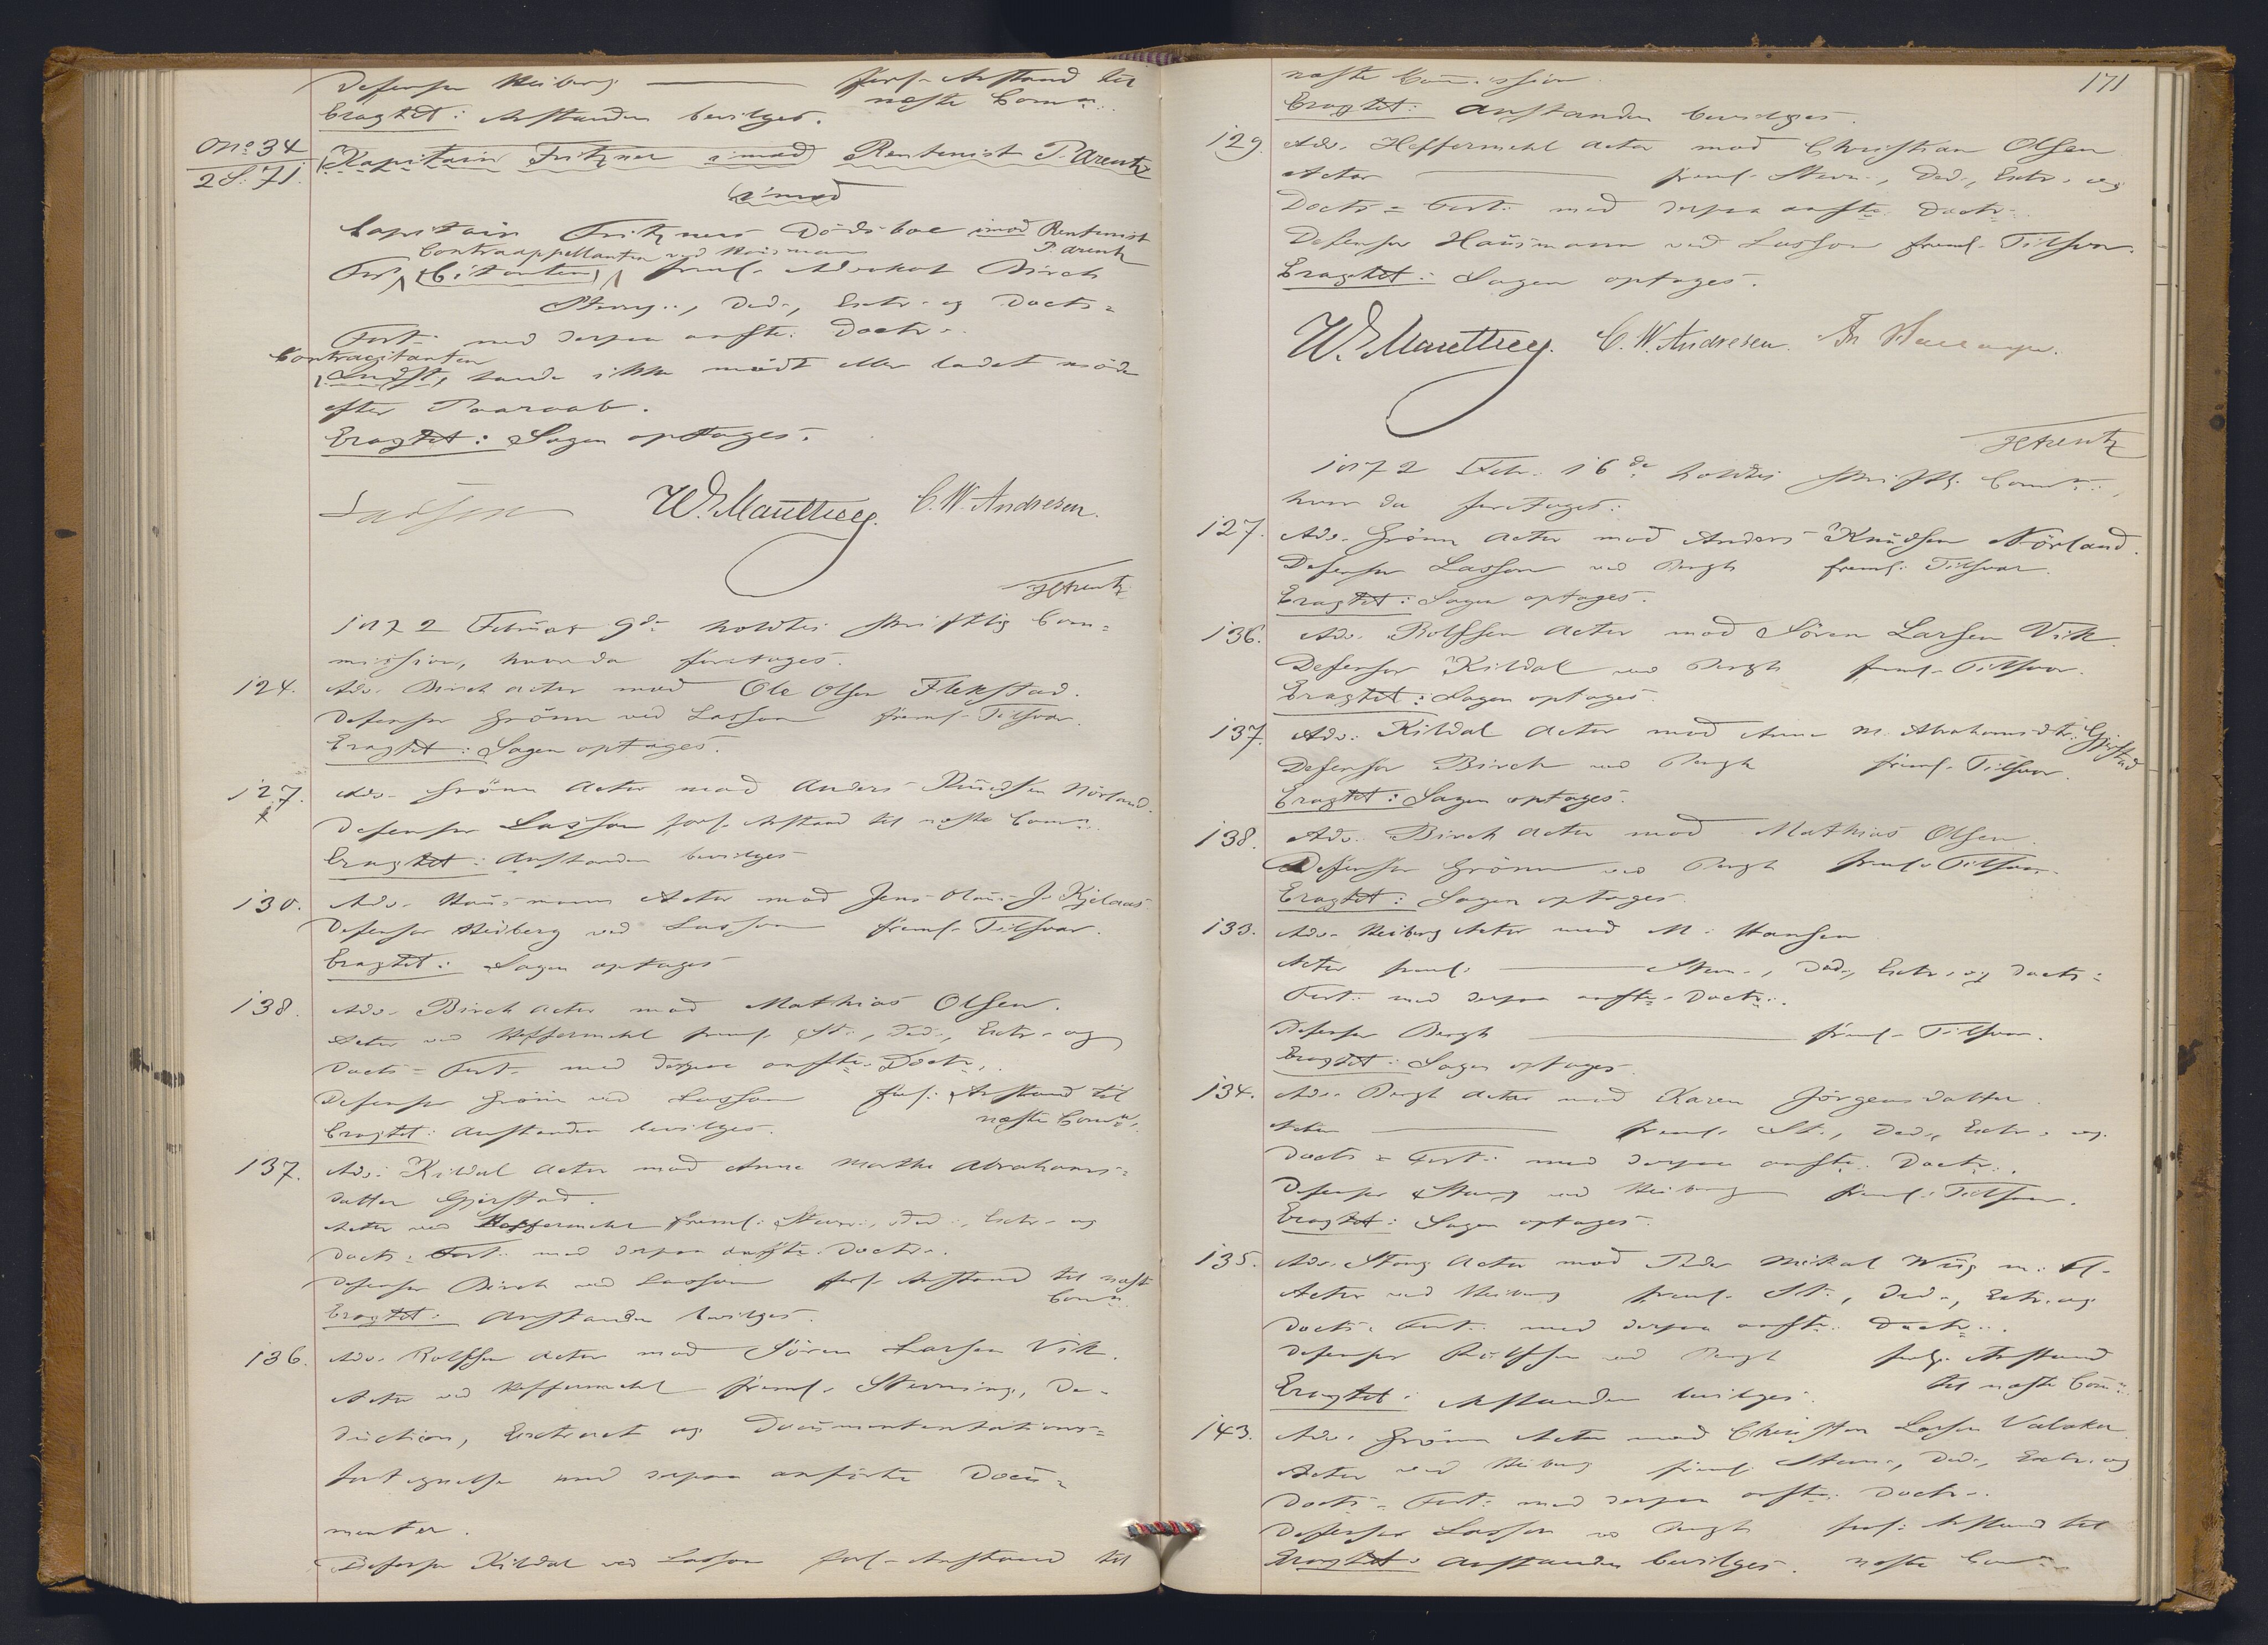 Defensor Heiberg — forl. Anstand til
næste Comn.
Eragtet: Anstanden bevilges.
No: 34
2 S. 71.
Kapitain Fritzner imod Rentenist P. Arentz
imod
Capitain Fritzners Dödsboe imod Rentenist
P. Arentz
Contraappellanten ved Hausmann
For Citanten freml. Advokat Birch
Stevng., Ded., Extr. og Docts=
Fort. med derpaa anfte. Doctr.
Contracitanten
Indst. havde ikke mödt eller ladet möde
efter Paaraab.
Eragtet: Sagen optages.
Lasson W. E. Mariboe C. W. Andresen.
H Arentz
1872 Februar 9de holdtes skriftlig Com=
mission, hvor da foretages.
124. Adv. Birch Actor mod Ole Olsen Flekstad.
Defensor Grönn ved Lasson freml. Tilsvar.
Eragtet: Sagen optages.
127. Adv. Grönn Actor mod Anders Knudsen Nörland.
Defensor Lasson forl. Anstand til næste Comn.
Eragtet: Anstanden bevilges
130. Adv. Hausmann Actor mod Jens Olaus J. Kjelaas
Defensor Heiberg ved Lasson freml. Tilsvar.
Eragtet: Sagen optages
138. Adv. Birch Actor mod Mathias Olsen.
Actor ved Heffermehl freml. St., Ded., Extr. og
Docts= Fort. med derpaa anfte. Doctr.
Defensor Grönn ved Lasson forl. Anstand til
næste Comn.
Eragtet: Anstanden bevilges.
137. Adv. Kildal Actor mod Anne Marthe Abrahams=
datter Gjerstad.
Actor ved Heffermehl freml. Stevn., Ded., Extr. og
Docts= Fort. med derpaa anfte. Doctr.
Defensor Birch ved Lasson forl. Anstand til næste
Comn.
Eragtet: Anstanden bevilges.
136. Adv. Rolfsen Actor mod Sören Larsen Vik.
Actor ved Heffermehl freml. Stevning, De=
duction, Extract og Documentations=
fortegnelse med derpaa anförte Docu=
menter.
Defensor Kildal ved Lasson forl. Anstand til
171
næste Commission.
Eragtet: Anstanden bevilges.
129. Adv. Heffermehl Actor mod Christian Olsen
Actor — freml. Stevn., Ded., Extr. og
Docts= Fort. med derpaa anfte. Doctr.
Defensor Hausmann ved Lasson freml. Tilsvar.
Eragtet: Sagen optages.
W. E. Mariboe. C. W. Andresen.
H Arentz
1872 Feb. 16de holdtes skriftl. Comn.,
hvor da foretages:
127. Adv. Grönn Actor mod Anders Knudsen Nörland.
Defensor Lasson ved Bergh freml. Tilsvar.
Eragtet: Sagen optages.
136. Adv. Rolfsen Actor mod Sören Larsen Vik.
Defensor Kildal ved Bergh freml. Tilsvar.
Eragtet: Sagen optages.
137. Adv. Kildal Actor mod Anne M. Abrahamsdtr. Gjerstad
Defensor Birch ved Bergh freml. Tilsvar.
Eragtet: Sagen optages.
138. Adv. Birch Actor mod Mathias Olsen
Defensor Grönn ved Bergh freml. Tilsvar.
Eragtet: Sagen optages.
133. Adv. Heiberg Actor mod M. Hansen
Actor freml. — Stevn., Ded., Extr. og Docts=
Fort. med derpaa anfte. Doctr.
Defensor Bergh — freml. Tilsvar.
Eragtet: Sagen optages.
134. Adv. Bergh Actor mod Karen Jörgensdatter.
Actor — freml. St., Ded., Extr. og
Docts= Fort. med derpaa anfte. Doctr.
Defensor Stang ved Heiberg freml. Tilsvar.
Eragtet: Sagen optages.
135. Adv. Stang Actor mod Peder Mikal Wiig m. fl.
Actor ved Heiberg freml. St., Ded., Extr. og
Docts= Fort. med derpaa anfte. Doctr.
Defensor Rolfsen ved Bergh forlg. Anstand
til næste Comn.
Eragtet: Anstanden bevilges.
143. Adv. Grönn Actor mod Christen Larsen Valaker
Actor ved Heiberg freml. Stevn., Ded., Extr. og
Docts= Fort. med derpaa anfte. Doctr.
Defensor Lasson ved Bergh forl. Anstand til
Eragtet: Anstanden bevilges. næste Comn.